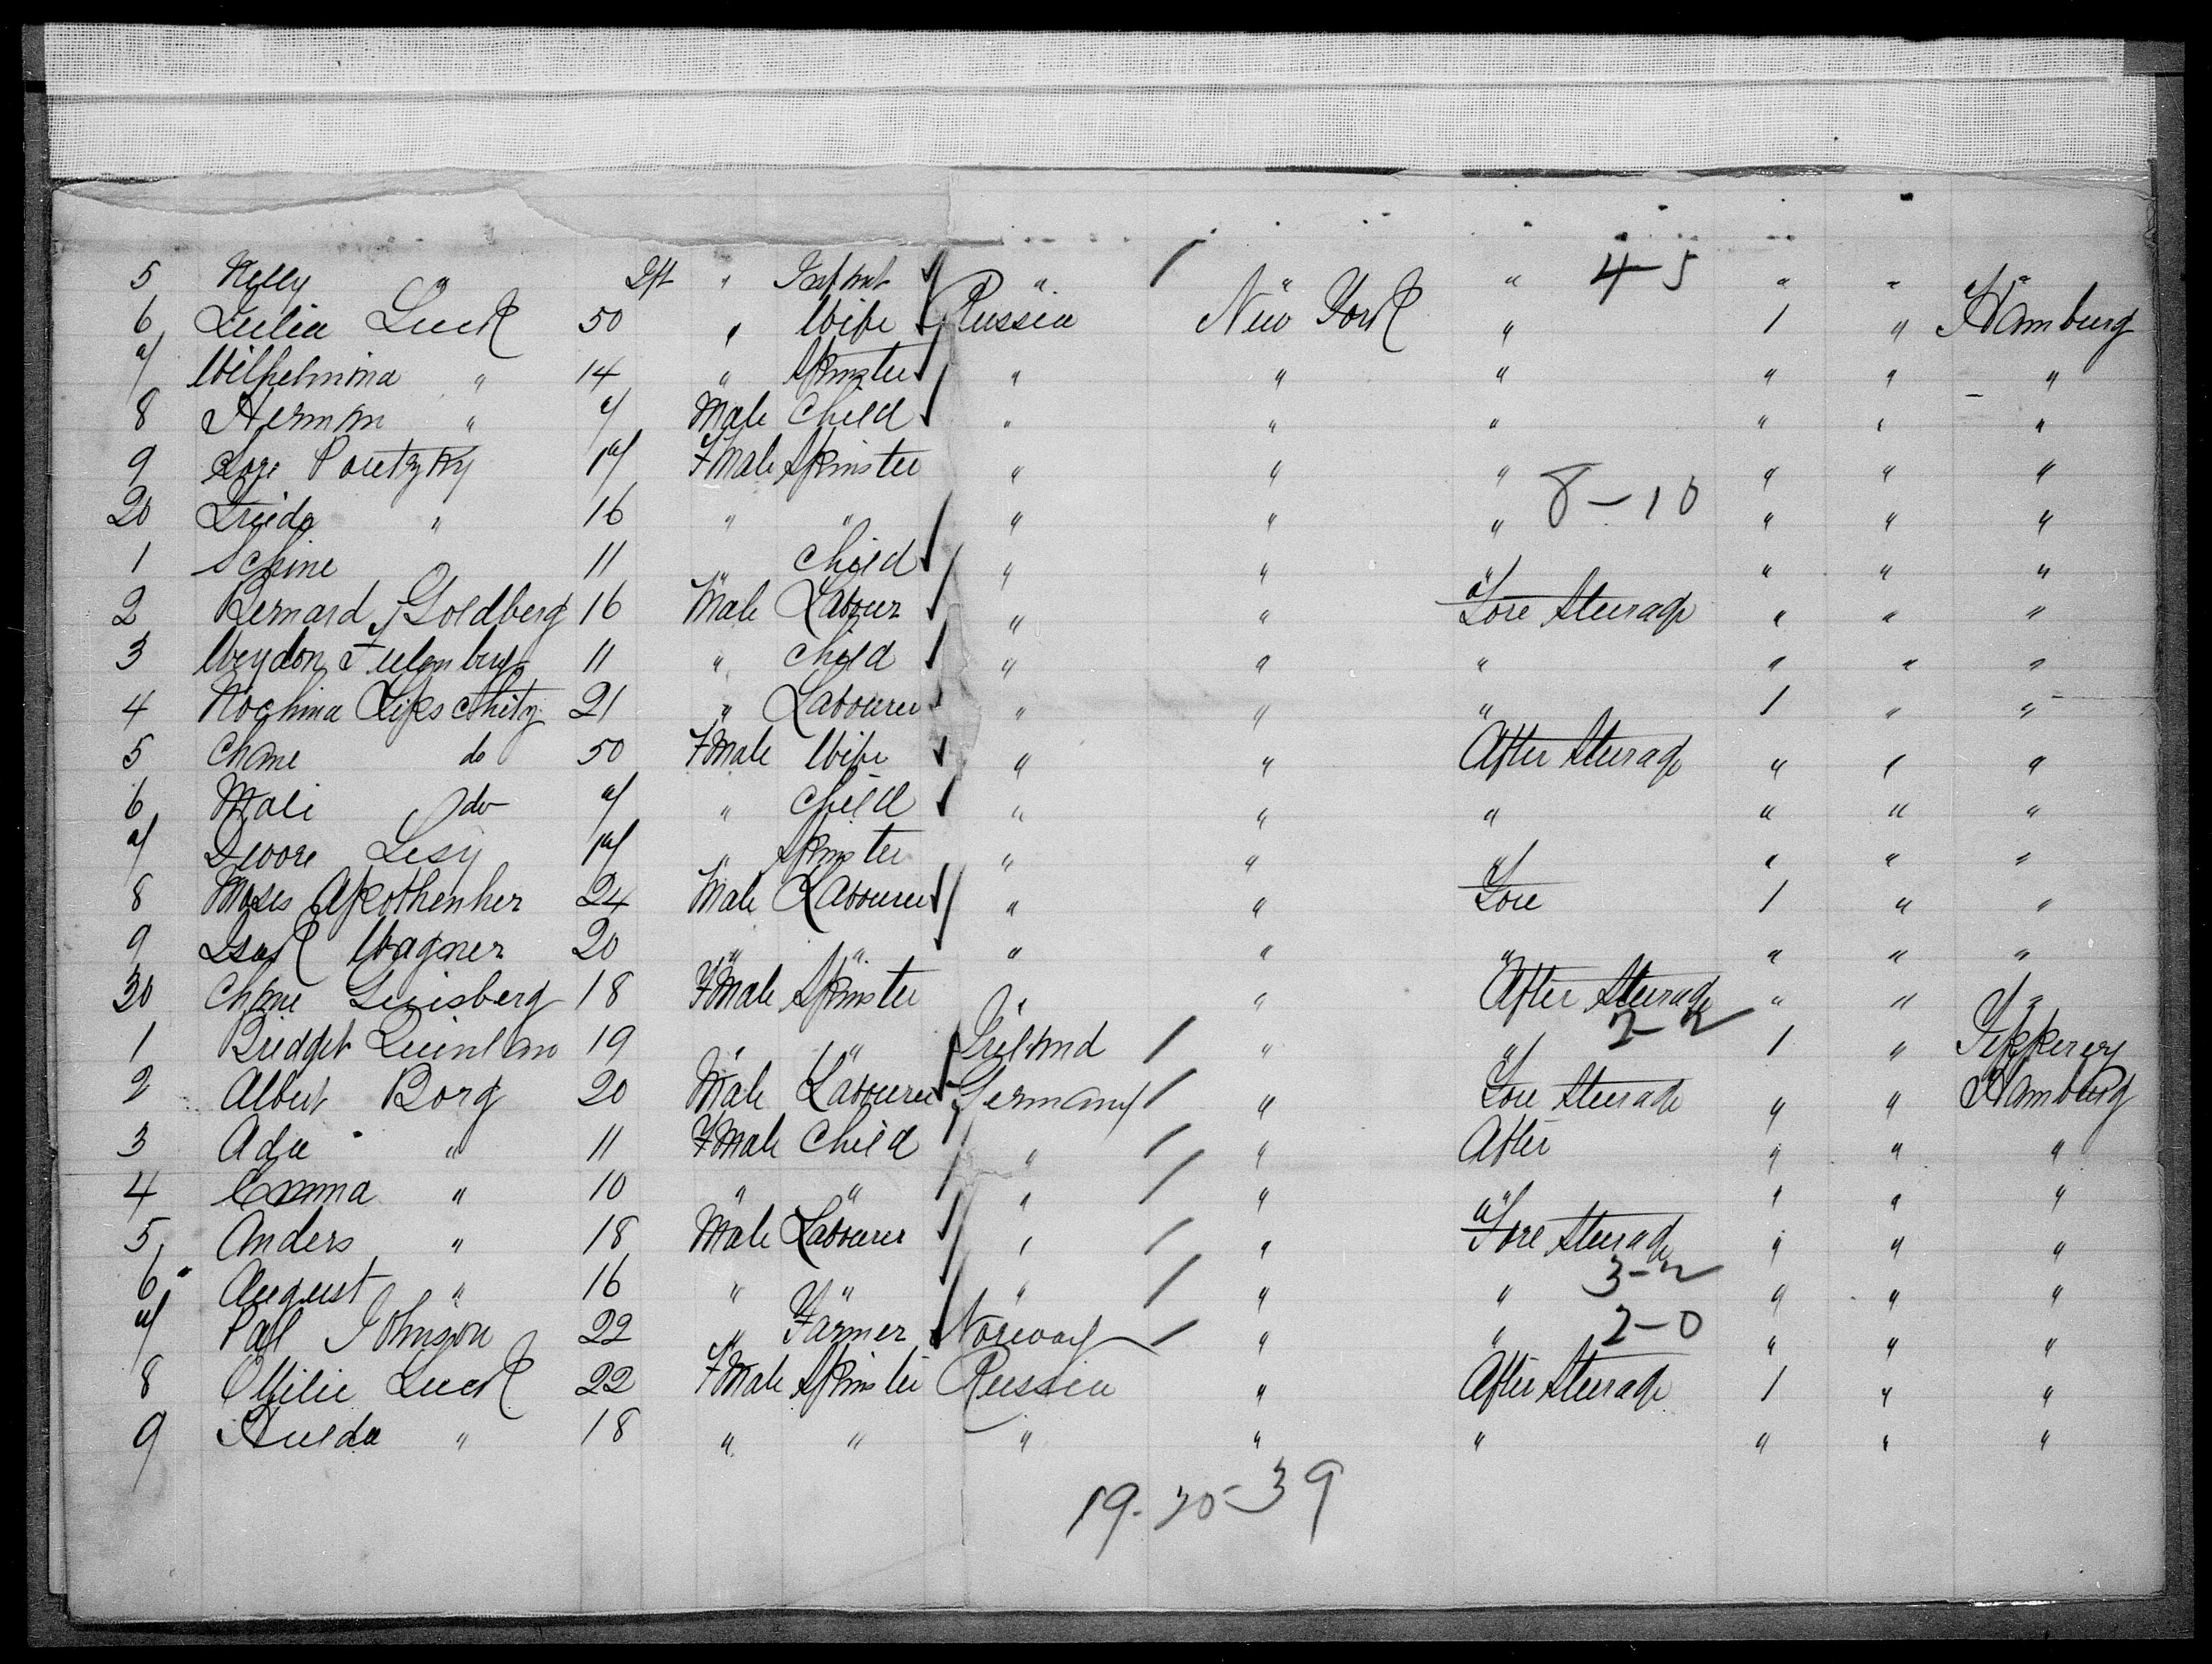 5 Nelly " " Infant " " " 4-5 " " "
6 Julia Luck 50 " Wife Russia New York " 1 " Hamburg
7 Wilhelmina " 14 " Spinster " " " " " "
8 Herman " 7 Male Child " " " " " "
9 Poretzky 17 Fmale Spinster " " " " " "
20 Frieda " 16 " " " " " 8-10 " " "
1 Schine 11 Child " " " " " "
2 Bernard Goldberg 16 Male Labour " " Fore Steerage " " "
3 11 " Child " " " " " "
4 Nochma Lipschitz 21 " Labourer " " " 1 " "
5 Chane do 50 Fmale Wife " " After Steerage " " "
6 Mali do 7 " Child " " " " " "
7 Dwore 17 " Spinster " " " " " "
8 Moses Apothenher 24 Male Labourer " " Fore 1 " "
9 Isak Wagner 20 " " " " " " " "
30 Chane Ginsberg 18 Fmale Spinster " " After Steerage " " "
1 Bridget Quinlan 19 " " Ireland " " 2-2 1 " Tipperary
2 Albert Borg 20 Male Labourer Germany " Fore Steerage " " Hamburg
3 Ada " 11 Fmale Child " " After " " "
4 Emma " 10 " " " " " " " "
5 Anders " 18 Male Labourer " " Fore Steerage " " "
6 August " 16 " " " " " 3-2 " " "
7 Paul Johnson 22 " Farmer Norway " " 2-0 " " "
8 Ottilie Luck 22 Fmale Spinster Russia " After Steerage 1 " "
9 Hulda " 18 " " " " " " " "
19-20-39